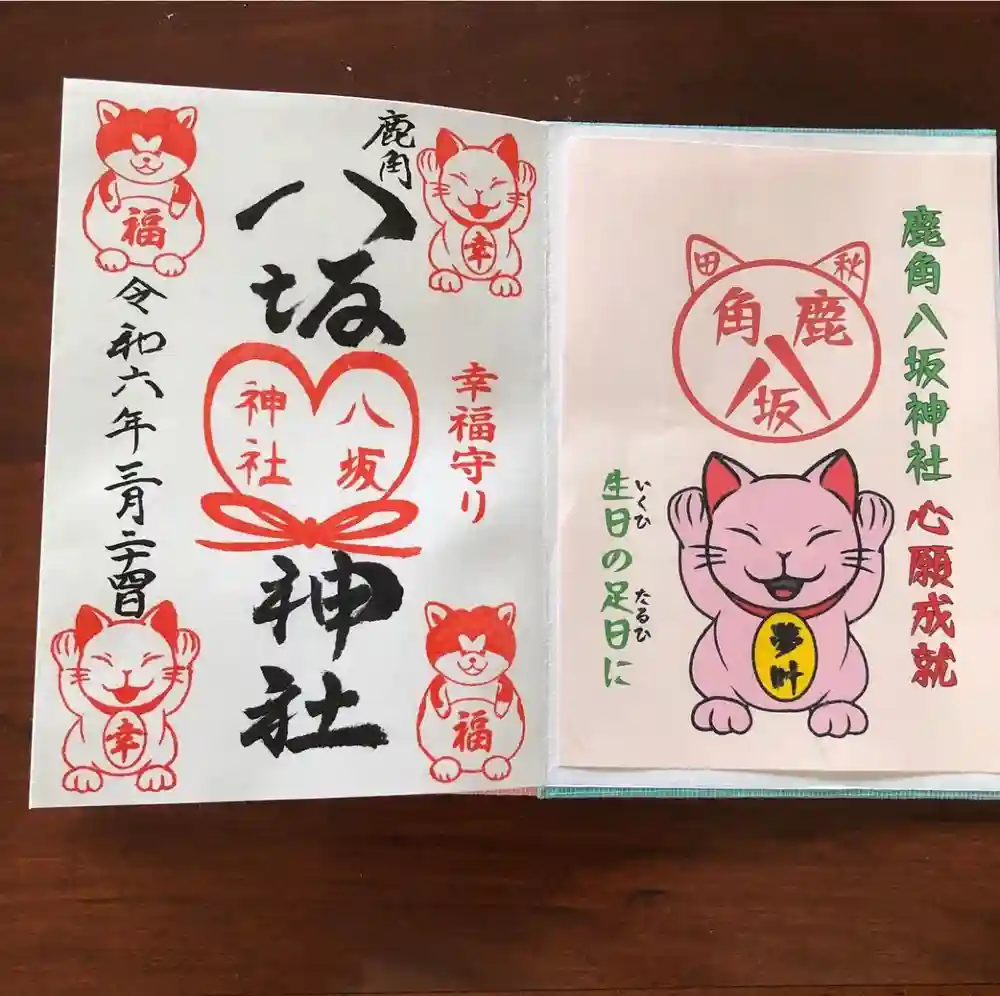 鹿角八坂神社 心願成就
秋田
鹿角
八坂
夢叶
生日の足日に
いくひ
たるひ
幸
鹿角
八坂神社
幸福守り
八坂
神社
福
福
令和六年三月二十四日
幸